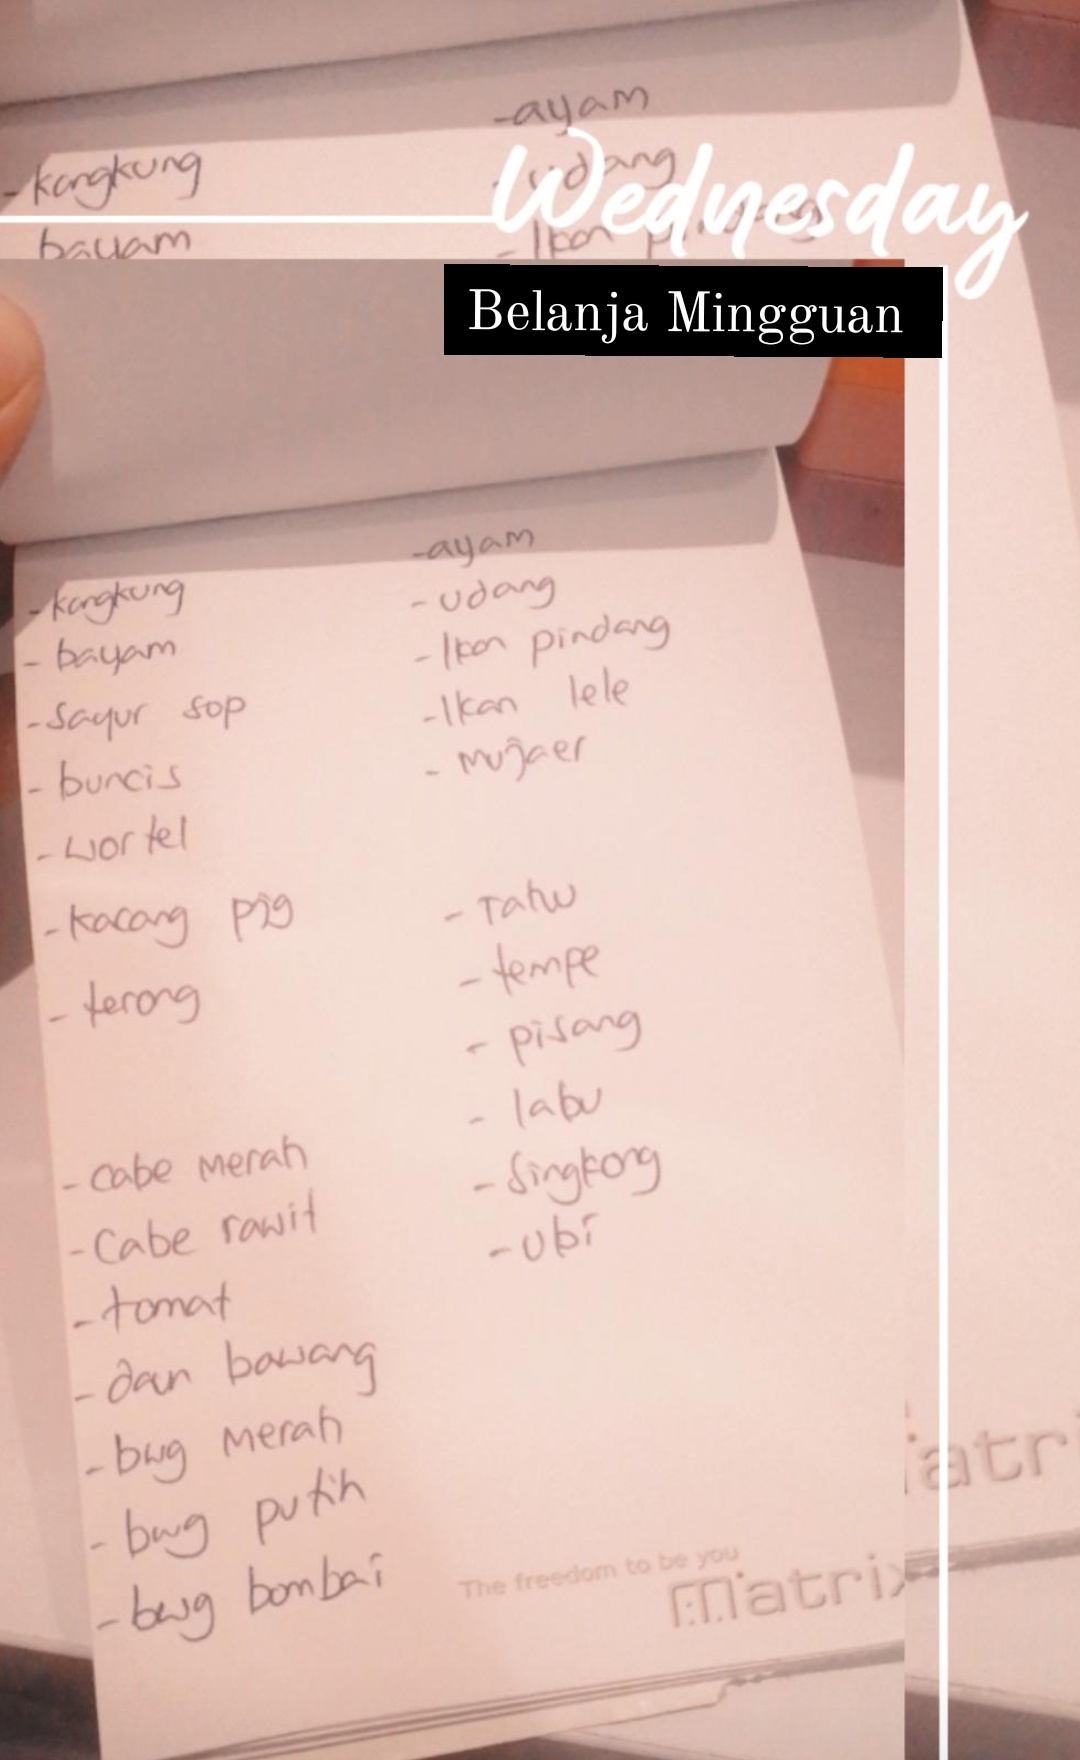 -ayam
-kangkung
-udang
Wednesday
bayam
-Ikan pindang
Belanja Mingguan
-kangkung
-bayam
-Sayur sop
-buncis
-wortel
-kacang pjg
-terong
-cabe merah
-Cabe rawit
-tomat
-daun bawang
-bwg merah
-bwg putih
-bwg bombai
-ayam
-udang
-Ikan pindang
-Ikan lele
-mujaer
-Tahu
-tempe
-pisang
-labu
-Singkong
-ubi
The freedom to be you
Matrix
atri